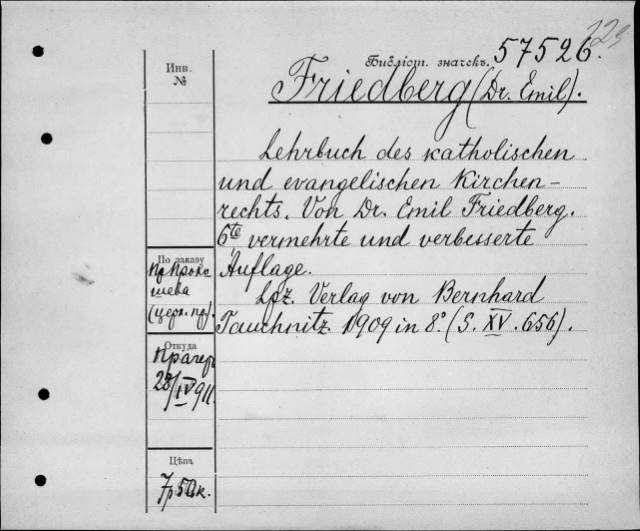 123
Библіот. значекъ. 57526.
Friedberg (Dr. Emil).
Инв.
№
Lehrbuch des katholischen
und evangelischen Kirchen-
rechts. Von Dr. Emil Friedberg.
6te vermehrte und verbesserte
Auflage.
Lpz. Verlag von Bernhard
Tauchnitz. 1909 in 8°. (S. XV. 656).
По заказу
Пр Прокo
шева
(церк. пр).
Откуда
28/IV 911.
Цѣна
7р 50к.